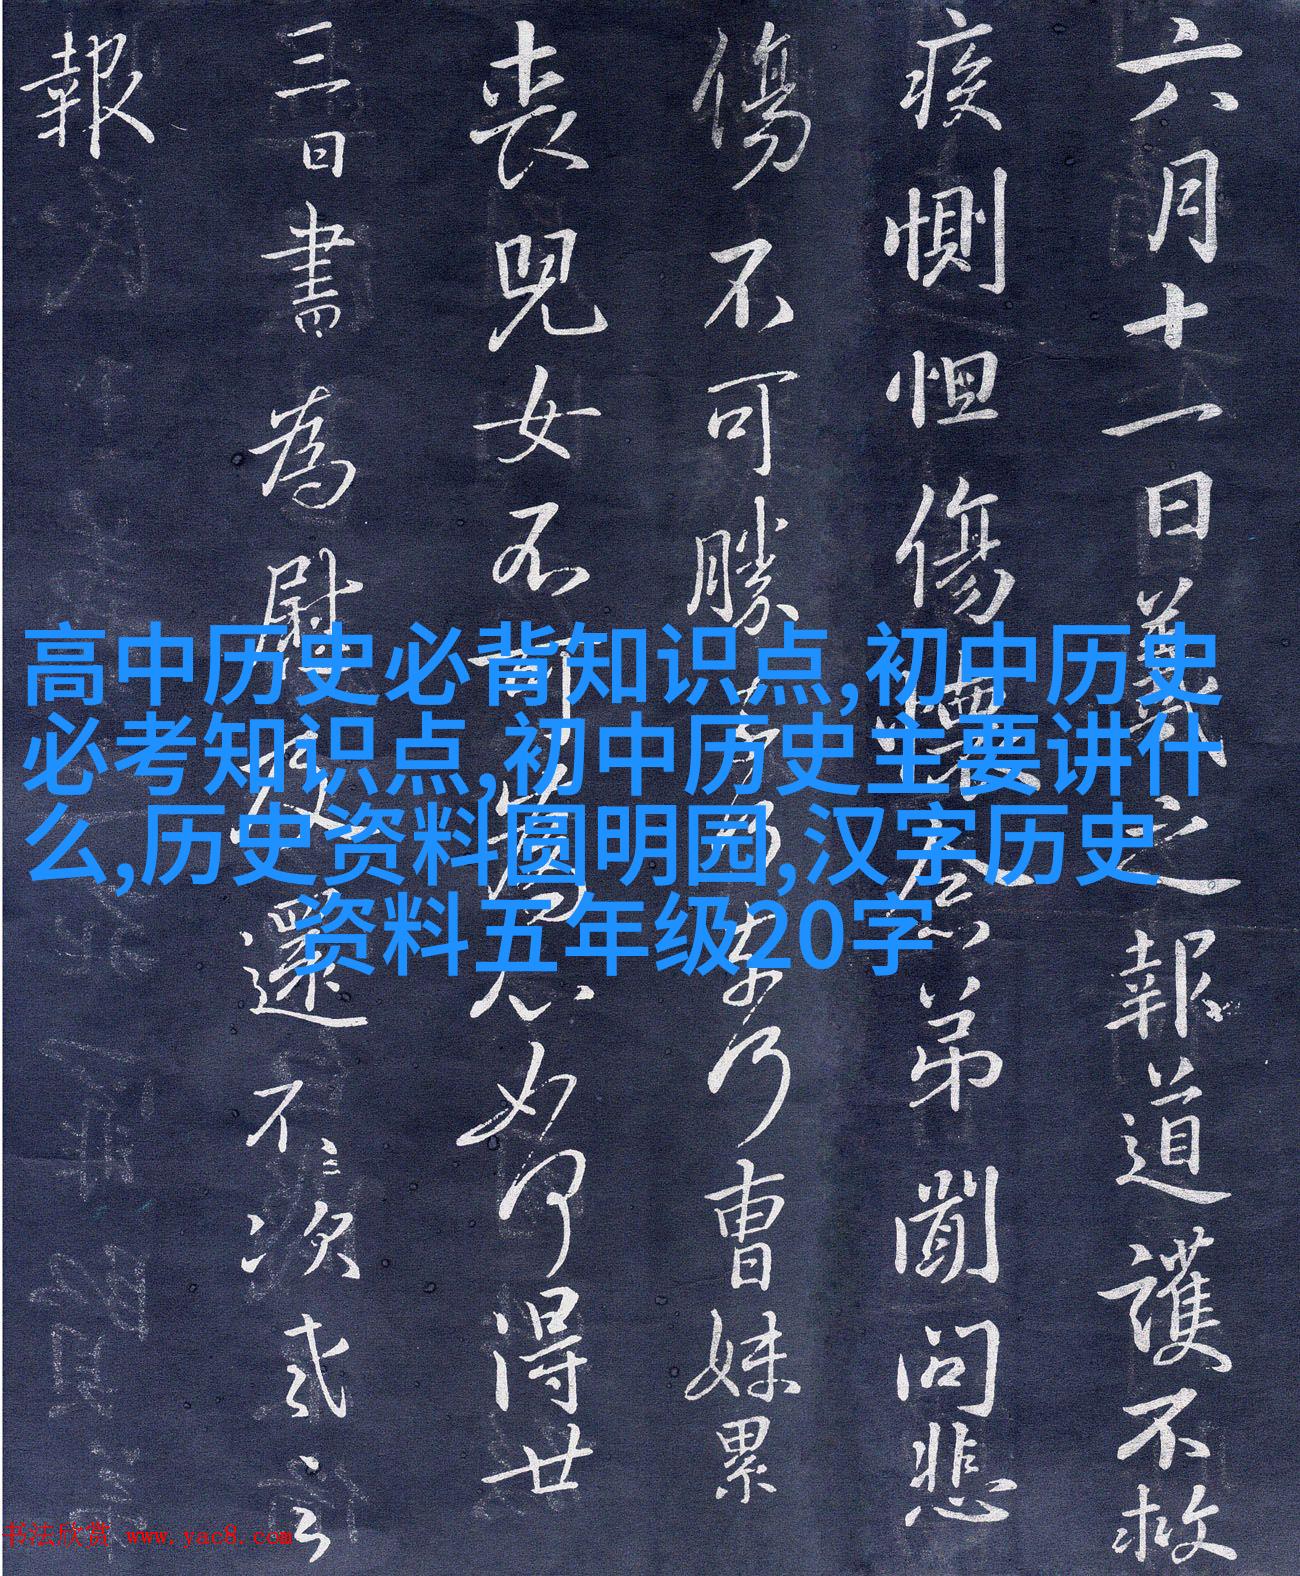 六月十一日羲之報道護不救
疾惻怛傷懷念弟聞問悲
傷不可勝曹妹累
喪兒女不可為心如何得廿
三日書為慰還不次
報
高中历史必背知识点,初中历史
必考知识点,初中历史主要讲什
么,历史资料圆明园,汉字历史
资料五年级20字
书法欣赏 www.yac8.com